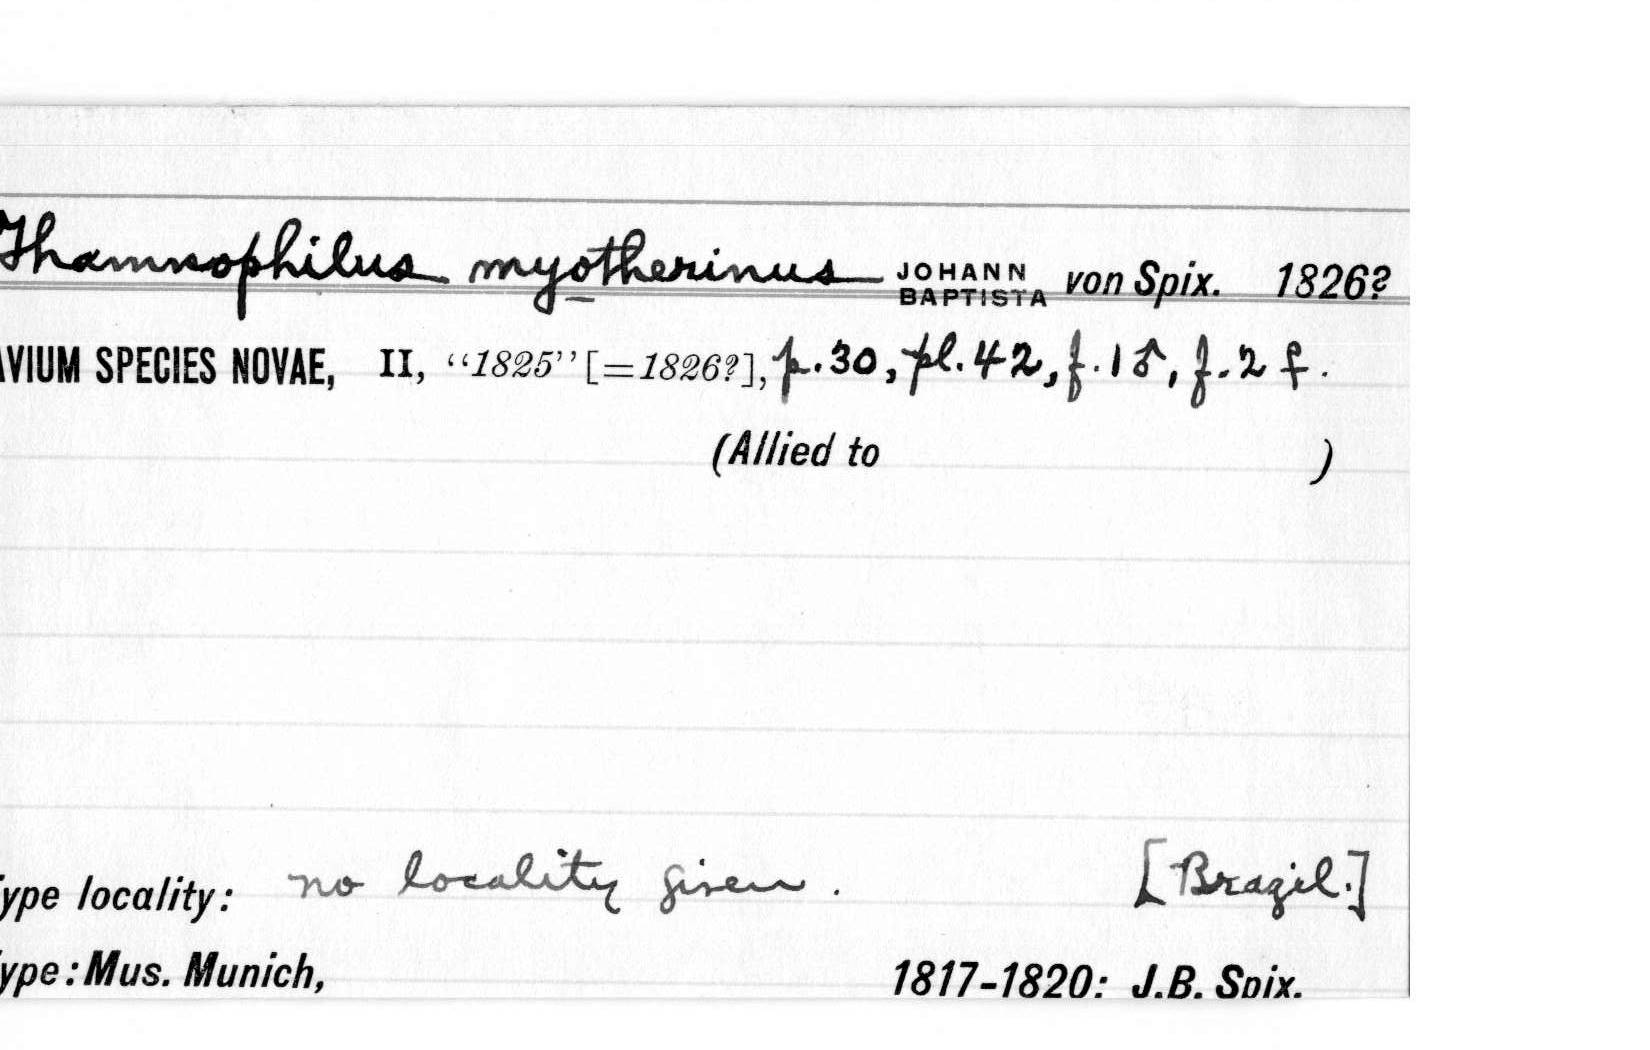 Thamnophilus myotherinus JOHANN BAPTISTA von Spix. 1826?
AVIUM SPECIES NOVAE, II, “1825” [=1826?], p.30, pl.42, f.1♂, f.2♀.
(Allied to )
ype locality: no locality given. [Brazil.]
ype: Mus. Munich, 1817-1820: J.B. Spix.